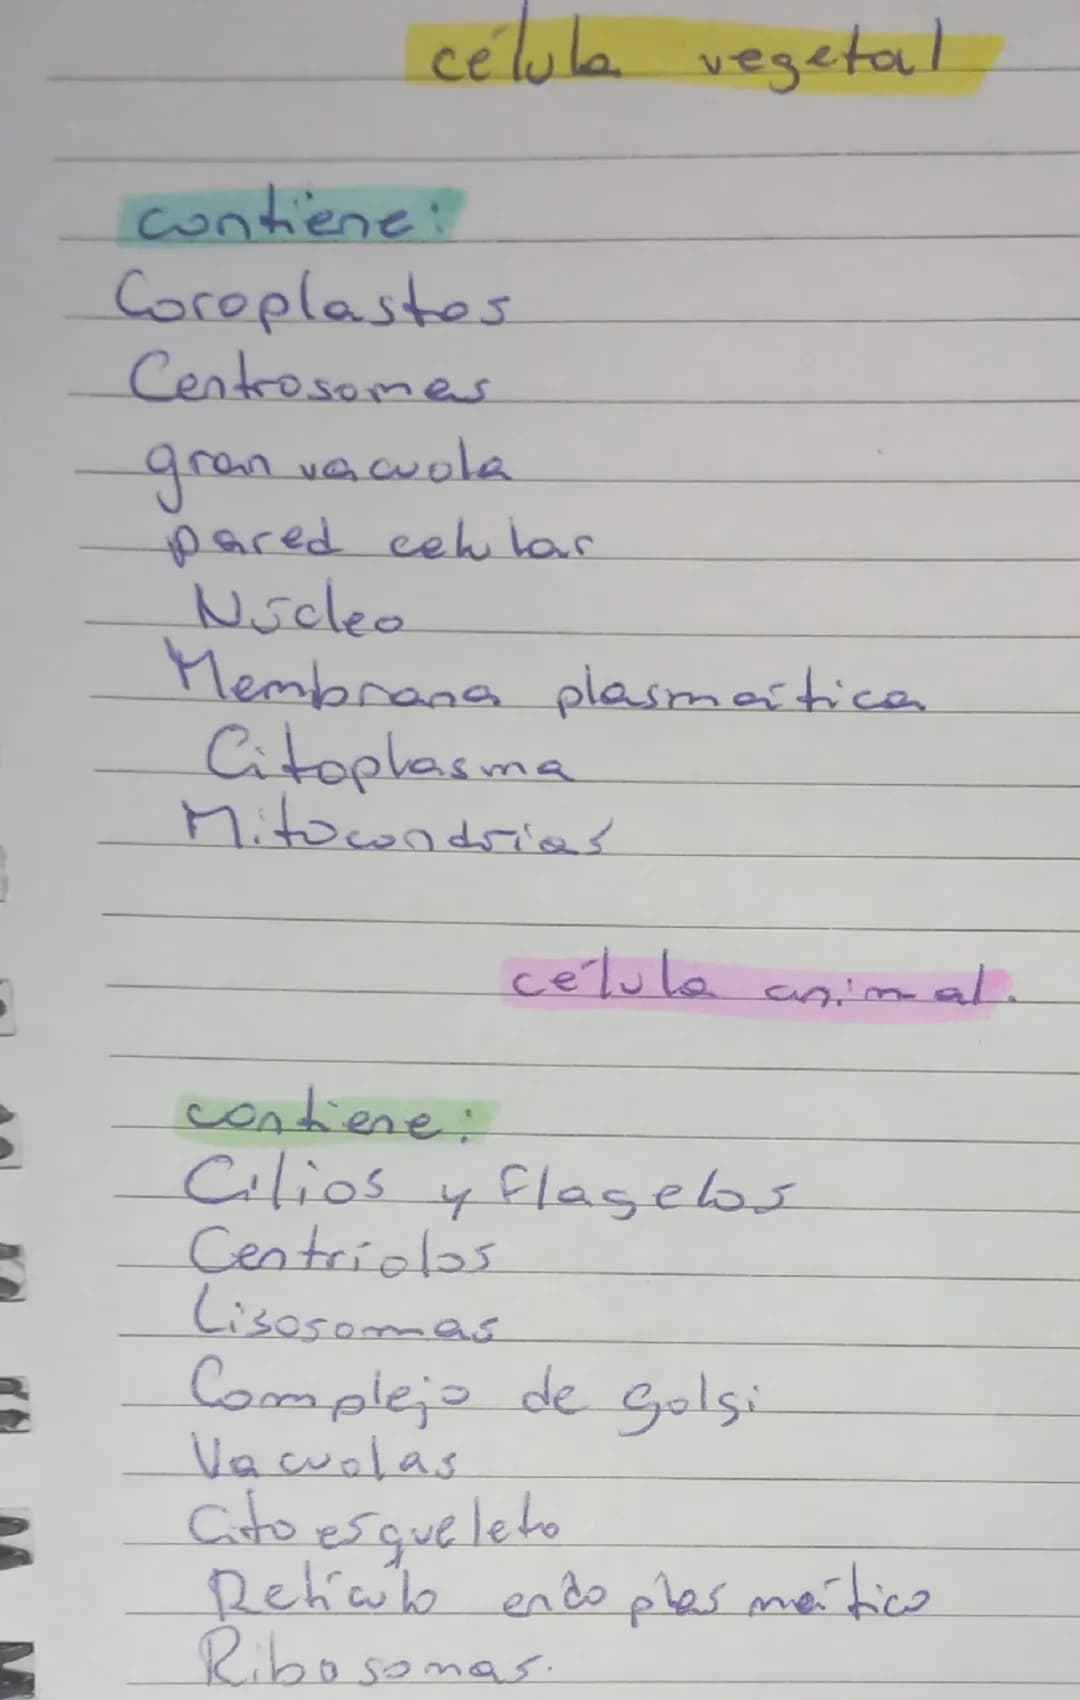 célula vegetal
contiene:
Coroplastos
Centrosomas
gran vacuola
pared celular
Núcleo
Membrana plasmática
Citoplasma
Mitocondrias
célula animal.
contiene:
Cilios y flagelos
Centríolos
Lisosomas
Complejo de golgi
Vacuolas
Citoesqueleto
Retículo endoplasmático
Ribosomas.